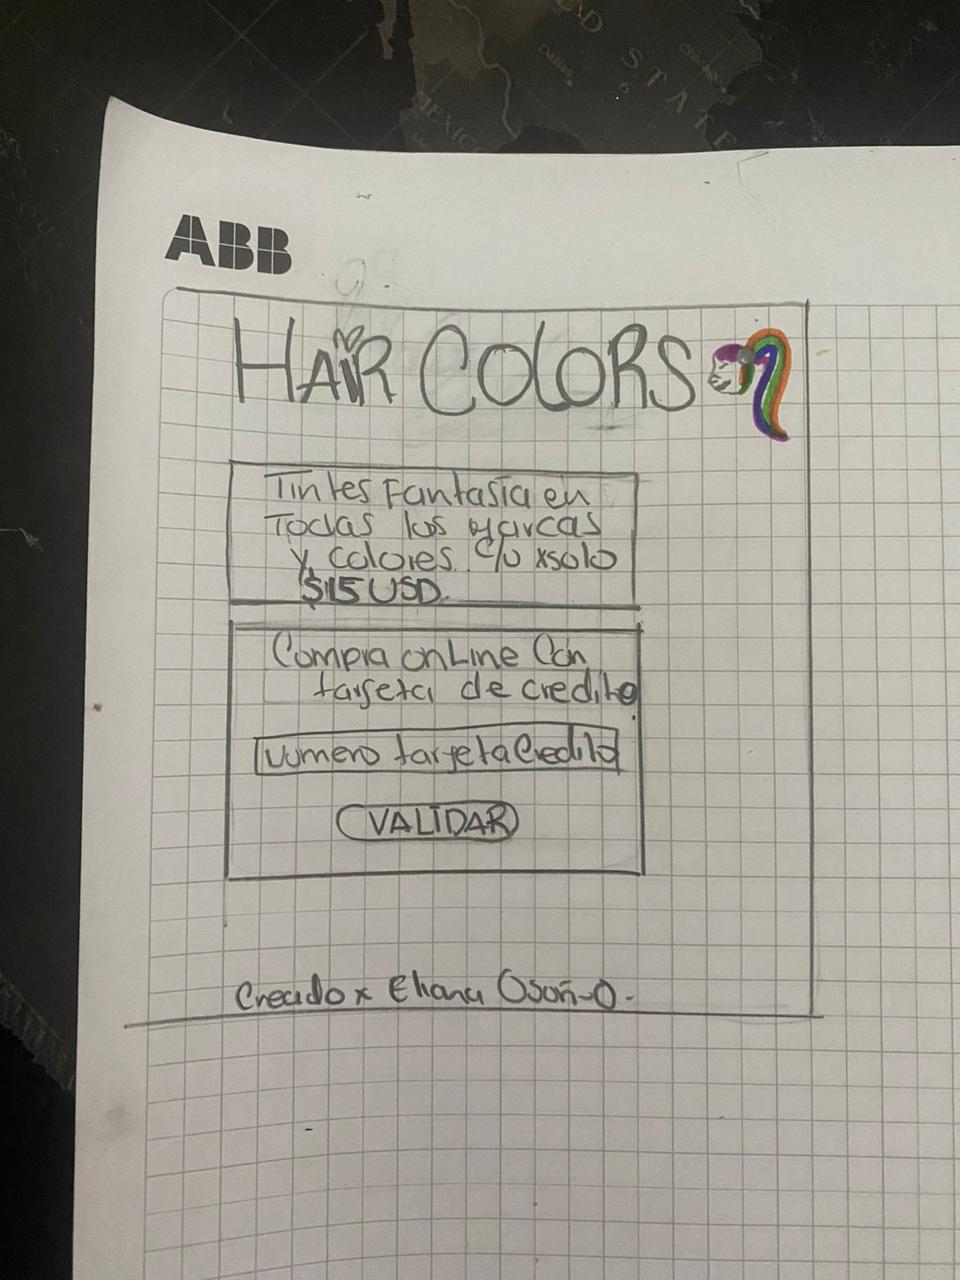 ABB
HAIR COLORS
Tintes Fantasía en
Todas las Marcas
y colores c/u xsolo
$15 USD.
Compra onLine Con
tarjeta de credito
Numero tarjeta Credito
VALIDAR
Creado x Eliana Osorio-O-
MEXICO
STATE